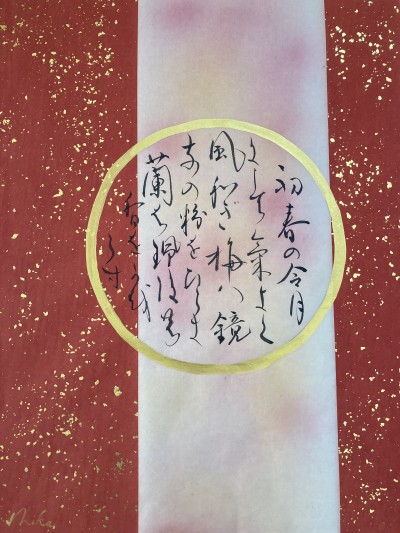 初春の令月
にして氣よく
風和ぎ梅ハ鏡
前の粉をひらき
蘭は珮後の
香をかを
らす